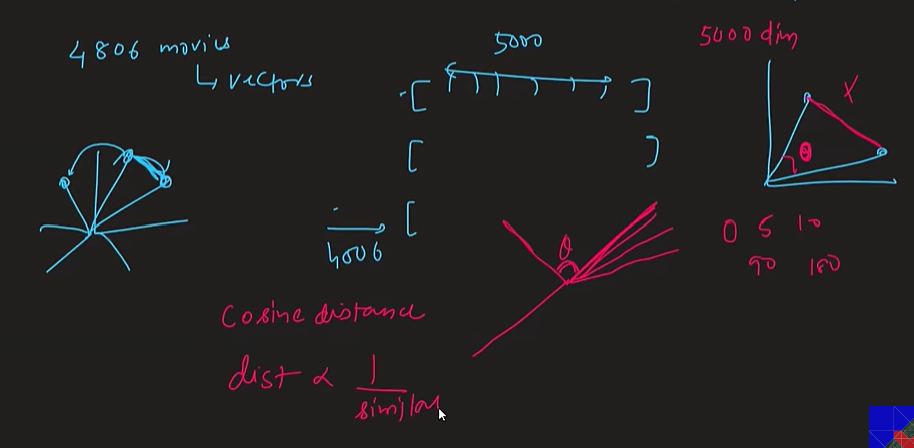 4806 movies
↳ vectors
5000
[ ]
[ ]
4806 [
5000 dim
X
θ
0 5 10
90 180
θ
Cosine distance
dist ∝ 1
similar